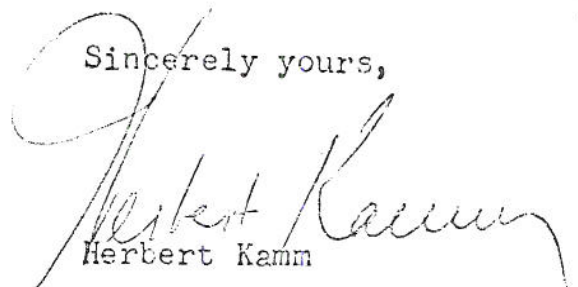 Sincerely yours,
Herbert Kamm
Herbert Kamm